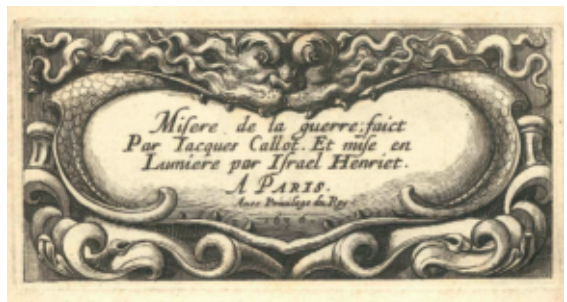 Misere de la guerre; faict
Par Jacques Callot. Et mise en
Lumiere par Israel Henriet.
A PARIS.
Avec Privilege du Roy.
1636